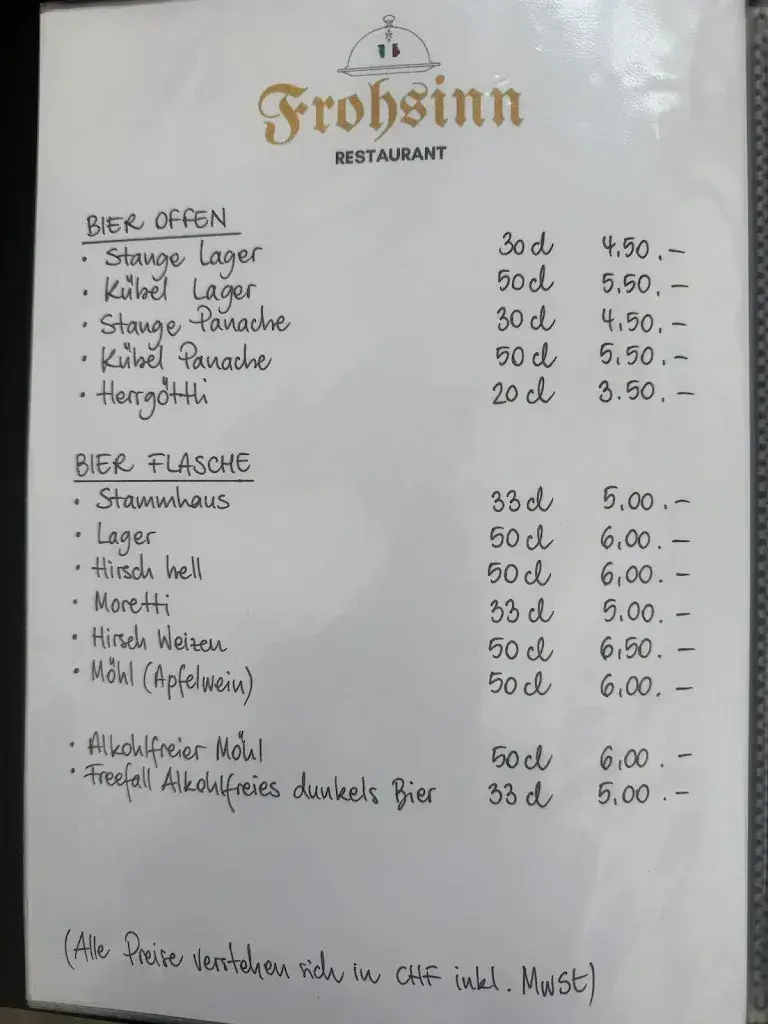 Frohsinn
RESTAURANT
BIER OFFEN
• Stange Lager 30 cl 4.50.-
• Kübel Lager 50 cl 5.50.-
• Stange Panache 30 cl 4.50.-
• Kübel Panache 50 cl 5.50.-
• Herrgöttli 20 cl 3.50.-
BIER FLASCHE
• Stammhaus 33 cl 5.00.-
• Lager 50 cl 6.00.-
• Hirsch hell 50 cl 6.00.-
• Moretti 33 cl 5.00.-
• Hirsch Weizen 50 cl 6.50.-
• Möhl (Apfelwein) 50 cl 6.00.-
• Alkohlfreier Möhl 50 cl 6.00.-
• Freefall Alkohlfreies dunkels Bier 33 cl 5.00.-
(Alle Preise verstehen sich in CHF inkl. MwSt)